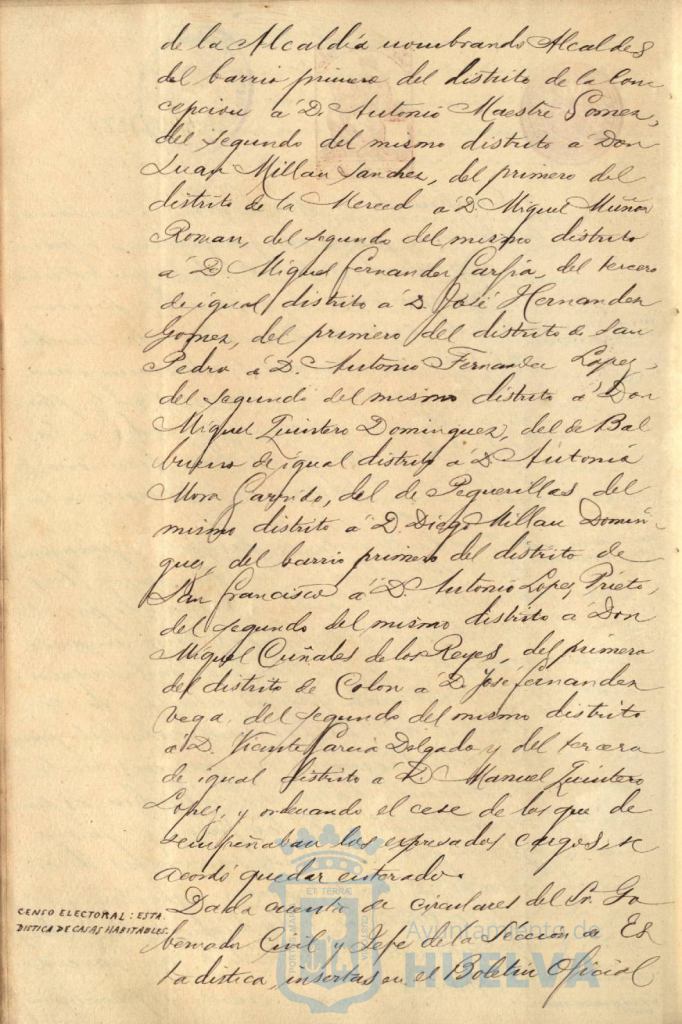 de la Alcaldía nombrando Alcaldes
del barrio primero del distrito de la Con
cepcion á D. Antonio Maestre Gomez,
del segundo del mismo distrito á Don
Juan Millan Sanchez, del primero del
distrito de la Merced á D. Miguel Muñoz
Roman, del segundo del mismo distrito
á D. Miguel Fernandez Garfia, del tercero
de igual distrito á D. José Hernandez
Gomez, del primero del distrito de San
Pedro á D. Antonio Fernandez Lopez,
del segundo del mismo distrito á Don
Miguel Quintero Dominguez, del de Bal
buena de igual distrito á D. Antonio
Mora Garrido, del de Peguerillas del
mismo distrito á D. Diego Millan Domin
guez, del barrio primero del distrito de
San Francisco á D. Antonio Lopez Prieto,
del segundo del mismo distrito á Don
Miguel Cuñales de los Reyes, del primero
del distrito de Colon á D. José Fernandez
Vega, del segundo del mismo distrito
á D. Vicente Garcia Delgado y del tercero
de igual distrito á D. Manuel Quintero
Lopez, y ordenando el cese de los que de
sempeñaban los expresados cargos, se
acordó quedar enterado.
CENSO ELECTORAL: ESTA
DISTICA DE CASAS HABITABLES.
Dada cuenta de circulares del Sr. Go
bernador Civil y Jefe de la Sección de Es
tadistica, insertas en el Boletin Oficial
ET TERRÆ
Ayuntamiento de
HUELVA